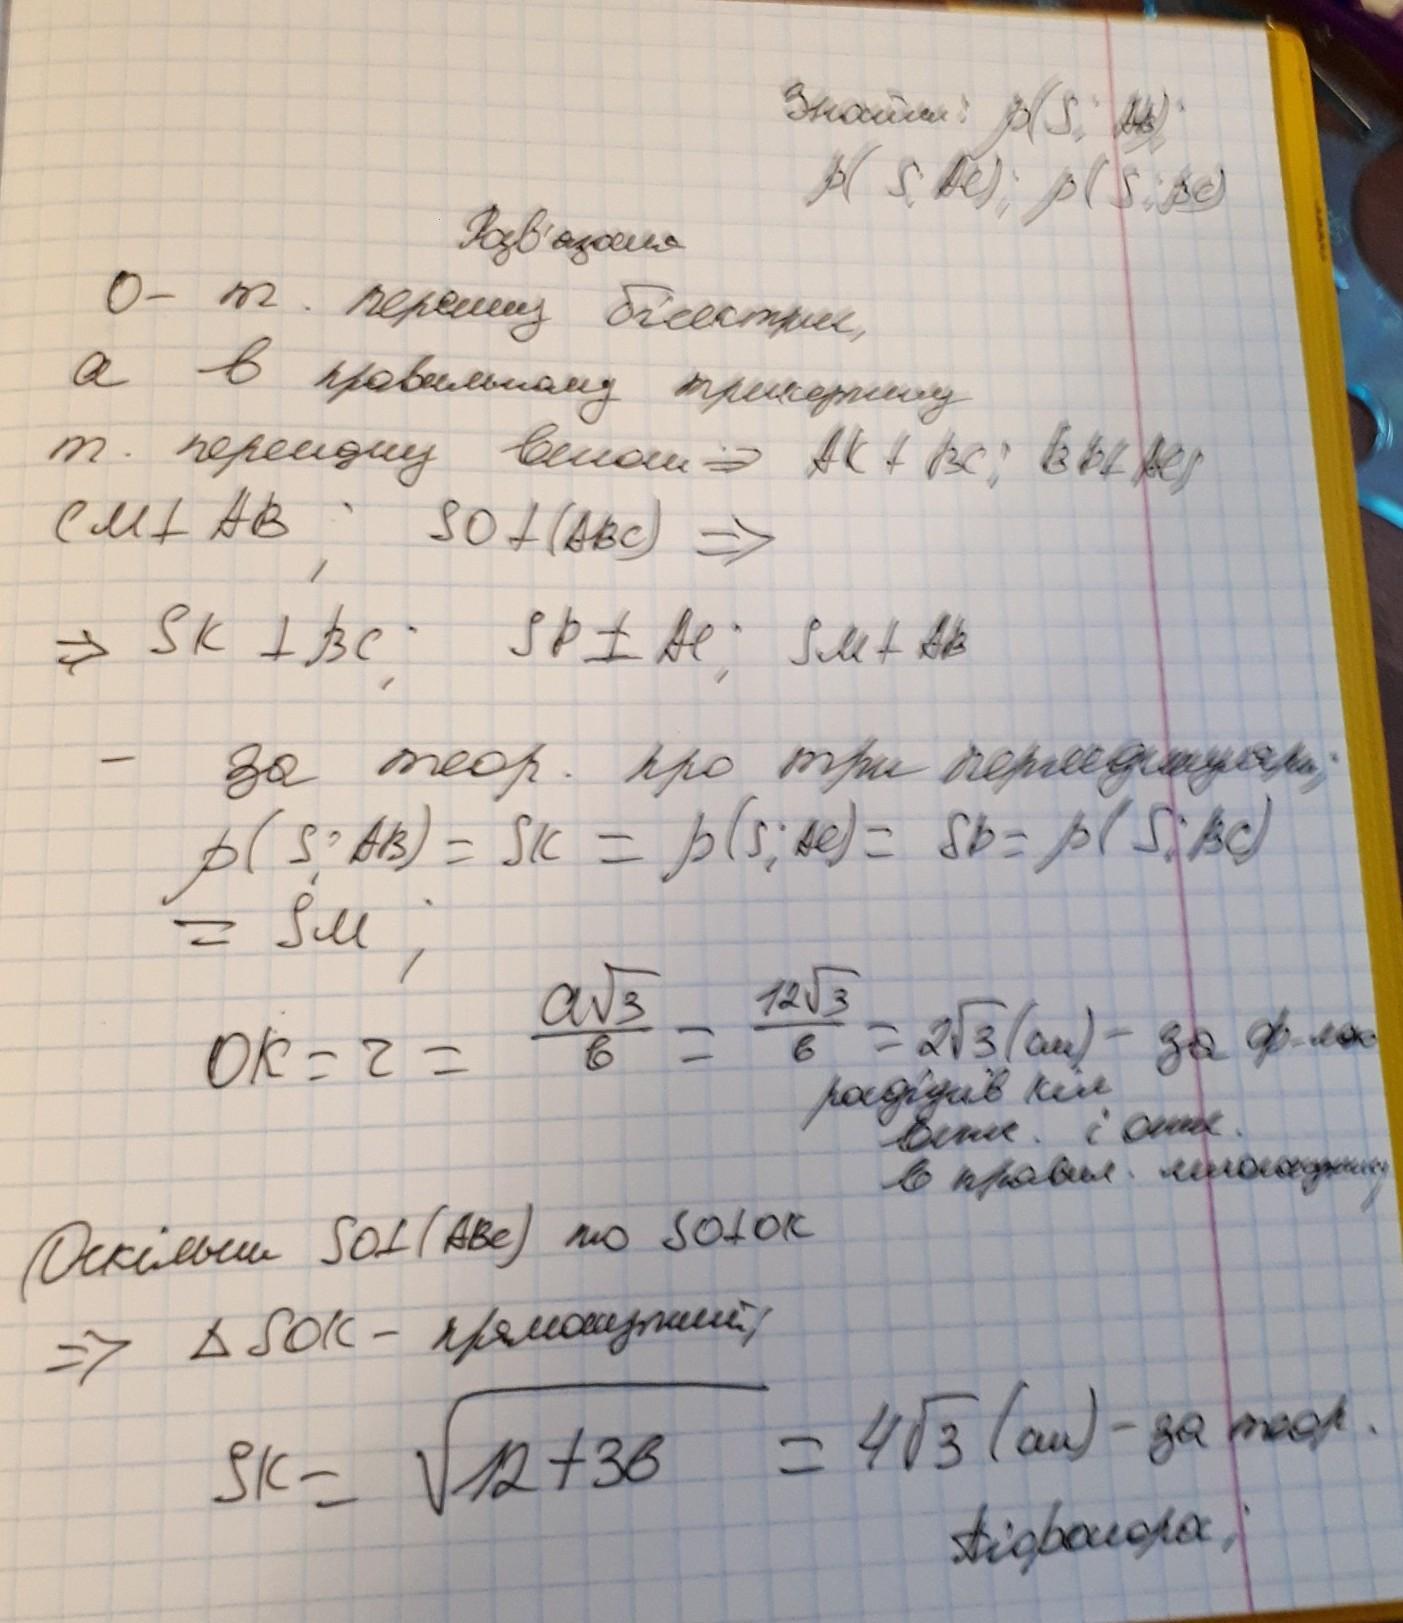 Знайти: ρ(S; AB);
ρ(S; AC); ρ(S; BC)
Розв'язання
O - т. перетину бісектрис,
а в правильному трикутнику
т. перетину висот ⇒ AK ⊥ BC; BP ⊥ AC;
CM ⊥ AB; SO ⊥ (ABC) ⇒
⇒ SK ⊥ BC; SP ⊥ AC; SM ⊥ AB
- за теор. про три перпендикуляри;
ρ(S; AB) = SK = ρ(S; AC) = SP = ρ(S; BC)
= SM;
OK = r = a√3/6 = 12√3/6 = 2√3 (см) - за ф-лою
радіусів кіл
впис. і опис.
в правил. многокутнику
Оскільки SO ⊥ (ABC) то SO ⊥ OK
⇒ Δ SOK - прямокутний;
SK = √12+36 = 4√3 (см) - за теор.
Піфагора;